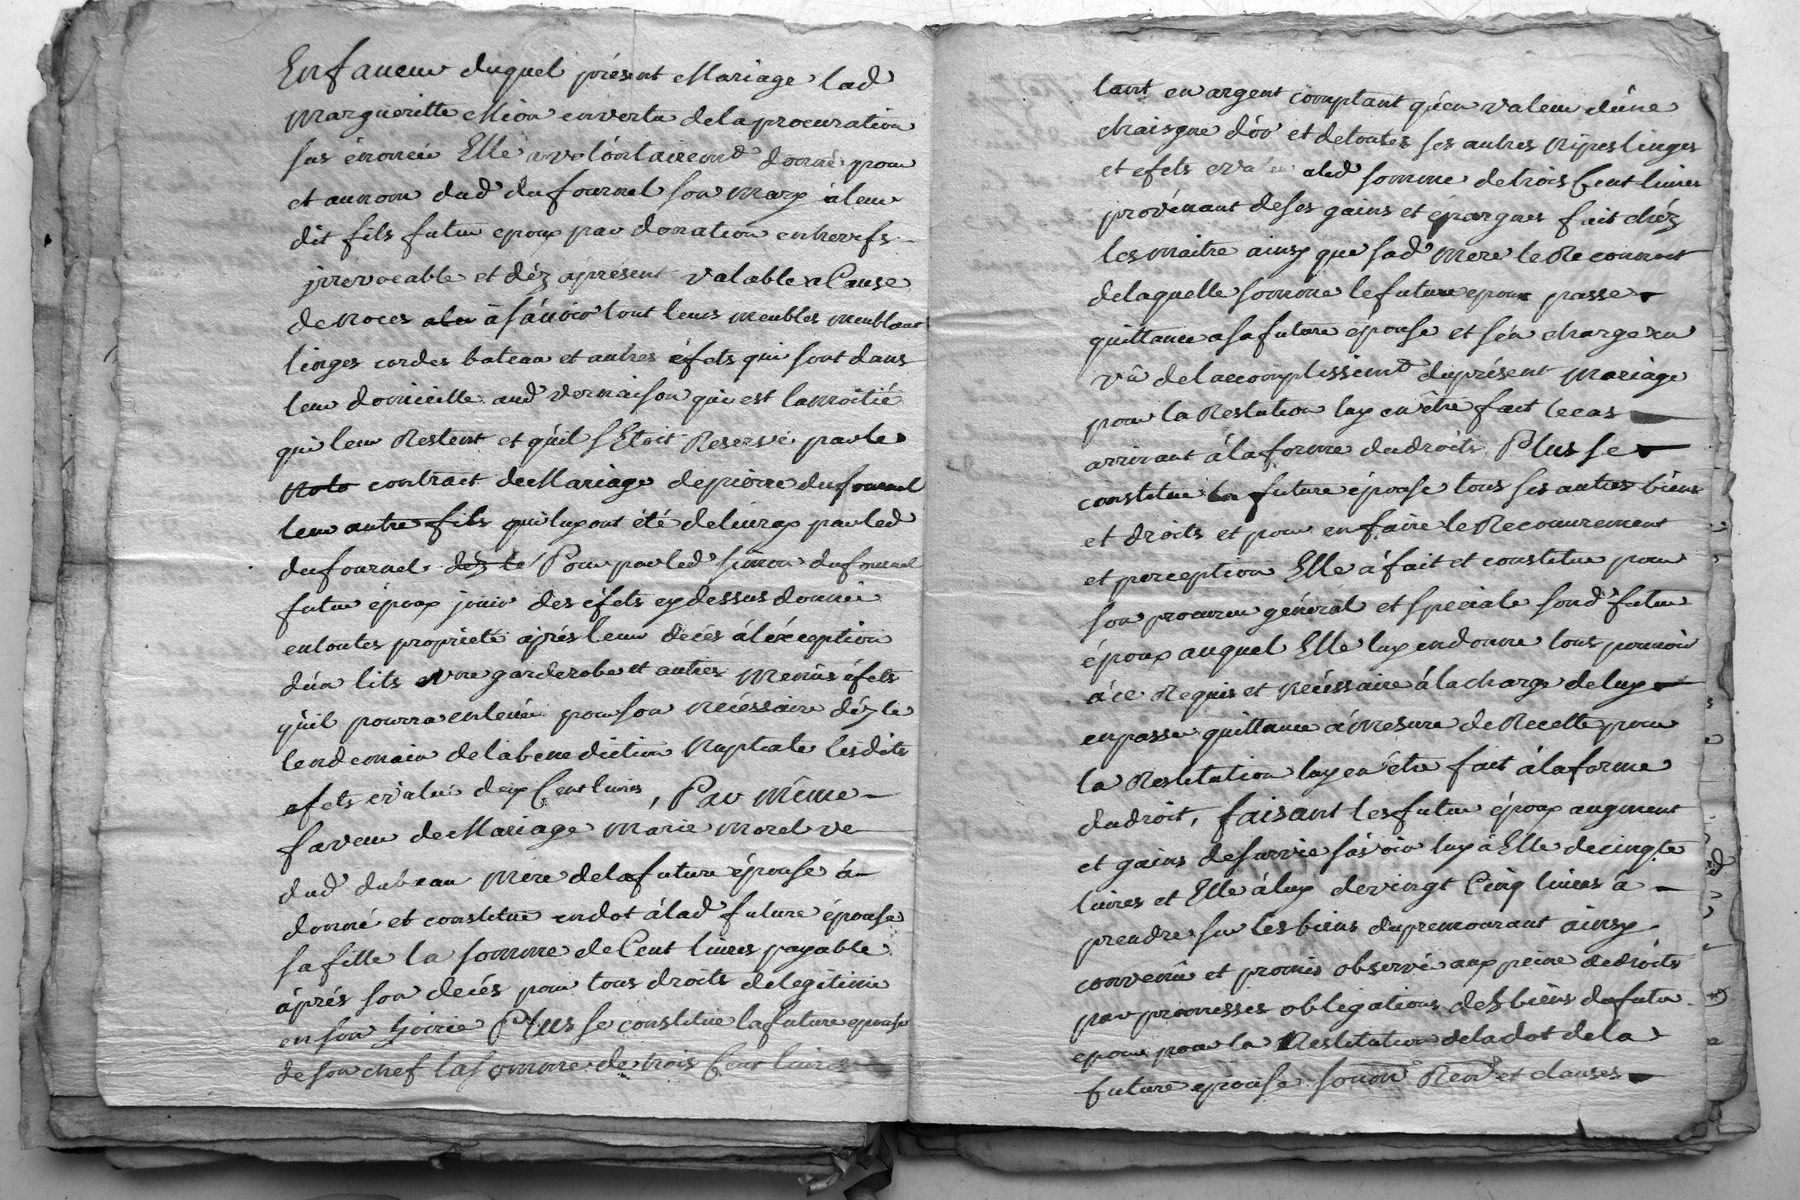 En faveur duquel présent Mariage lad
Margueritte Mion en vertu de la procuration
sus énoncée Elle a volontairem.t donné pour
et au nom dud dufournel son mary à leur
dit fils futur epoux par donation entrevifs
irrevocable et déz apresent valable a Cause
de noces à sávoir tout leurs meubles meublant
linges cordes bateau et autres éfets qui sont dans
leur domicille aud vernaison qui est la moitié
qui leur Restent et quil s'Etoit Reservé par le
contract de Mariage de pierre dufournel
leur autre fils qui luy ont été delivray par led
dufournel déz le Pour par led simon dufournel
futur époux jouir des éfets cy dessus donnée
en toutes proprieté aprés leur décés àl éxception
dún lits une garderobe et autres menûs éfets
qúil pourra enlevér pour son nécéssaire déz le
lendemain de la benediction Nuptiale lesdits
efets evalué deux Cent livres, Par même
faveur de Mariage Marie Morel ve
dud dubeau mere de la future épouse à
donné et constitue en dot à lad future épouse
sa fille la somme de Cent livres payable
áprés son decés pour tous droits de legitime
en son hoirie Plus se constitue la future epouse
de son chef la somme de trois Cent livres
tant en argent comptant qúen valeur dúne
chaisgne d'or et de toutes ses autres nipes linges
et efets evalué alad somme de trois Cent livres
provénant de ses gains et épargnes fait chéz
les maitre ainsy que sad mere le Reconnoit
de laquelle somme le futur epoux passe
quittance a sa future épouse et s'én charge en
vû de laccomplissem.t du présent Mariage
pour la Restution luy en être fait le cas
arrivant á la forme du droits, Plus se
constitue la future épouse tous ses autres biens
et droits et pour en faire le Recouvrement
et perception Elle à fait et constitue pour
son procureur général et speciale sond futur
époux auquel Elle luy en donne tous pouvoir
à ce Requis et nécéssaire á la charge de luy
en passer quittance á mesure de Recette pour
la Restitution luy en étre fait á la forme
du droit, faisant les futur époux augment
et gains de survie sávoir luy à Elle de cinqte
livres et Elle à luy de vingt Cinq livres à
prendre sur les biens du premourant ainsy
convenû et promis observé aux peine de droits
par promesses obligations des biens du futur
epoux pour la Restitution de la dot de la
future epouse soumon Renon et clauses